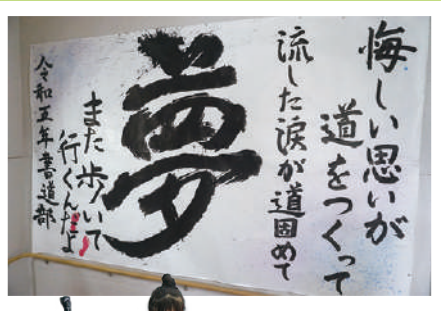 悔しい思いが
道をつくって
流した涙が道固めて
夢
また歩いて
行くんだよ
令和五年書道部